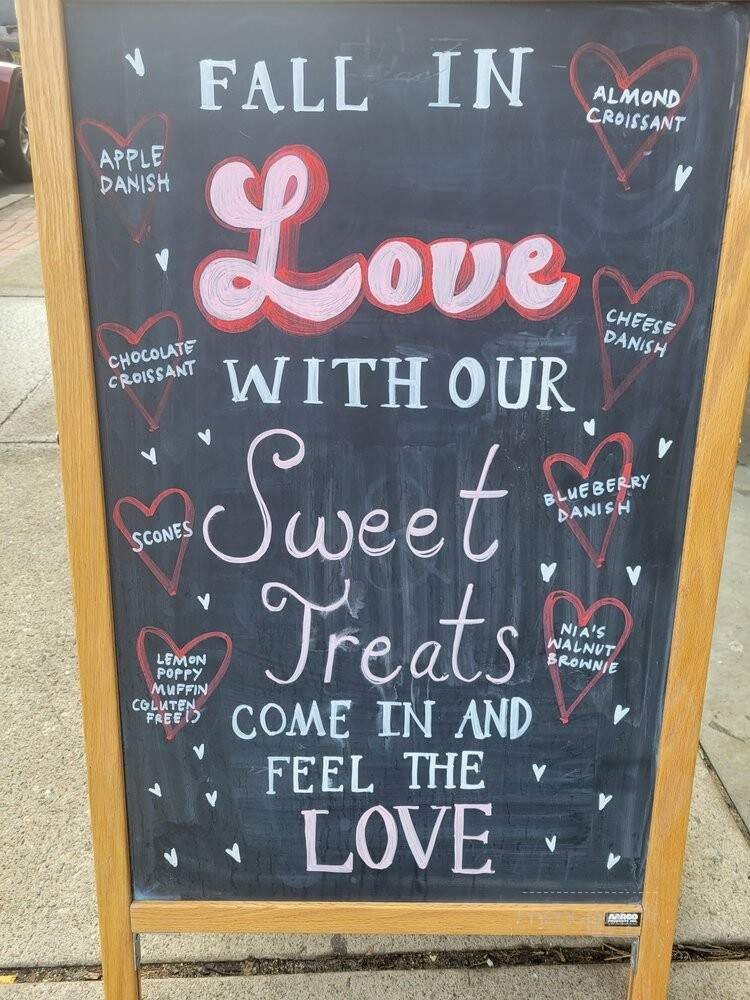 FALL IN
ALMOND
CROISSANT
APPLE
DANISH
Love
CHEESE
DANISH
CHOCOLATE
CROISSANT
WITH OUR
Sweet
BLUEBERRY
DANISH
SCONES
Treats
NIA'S
WALNUT
BROWNIE
LEMON
POPPY
MUFFIN
(GLUTEN
FREE!)
COME IN AND
FEEL THE
LOVE
AARCO